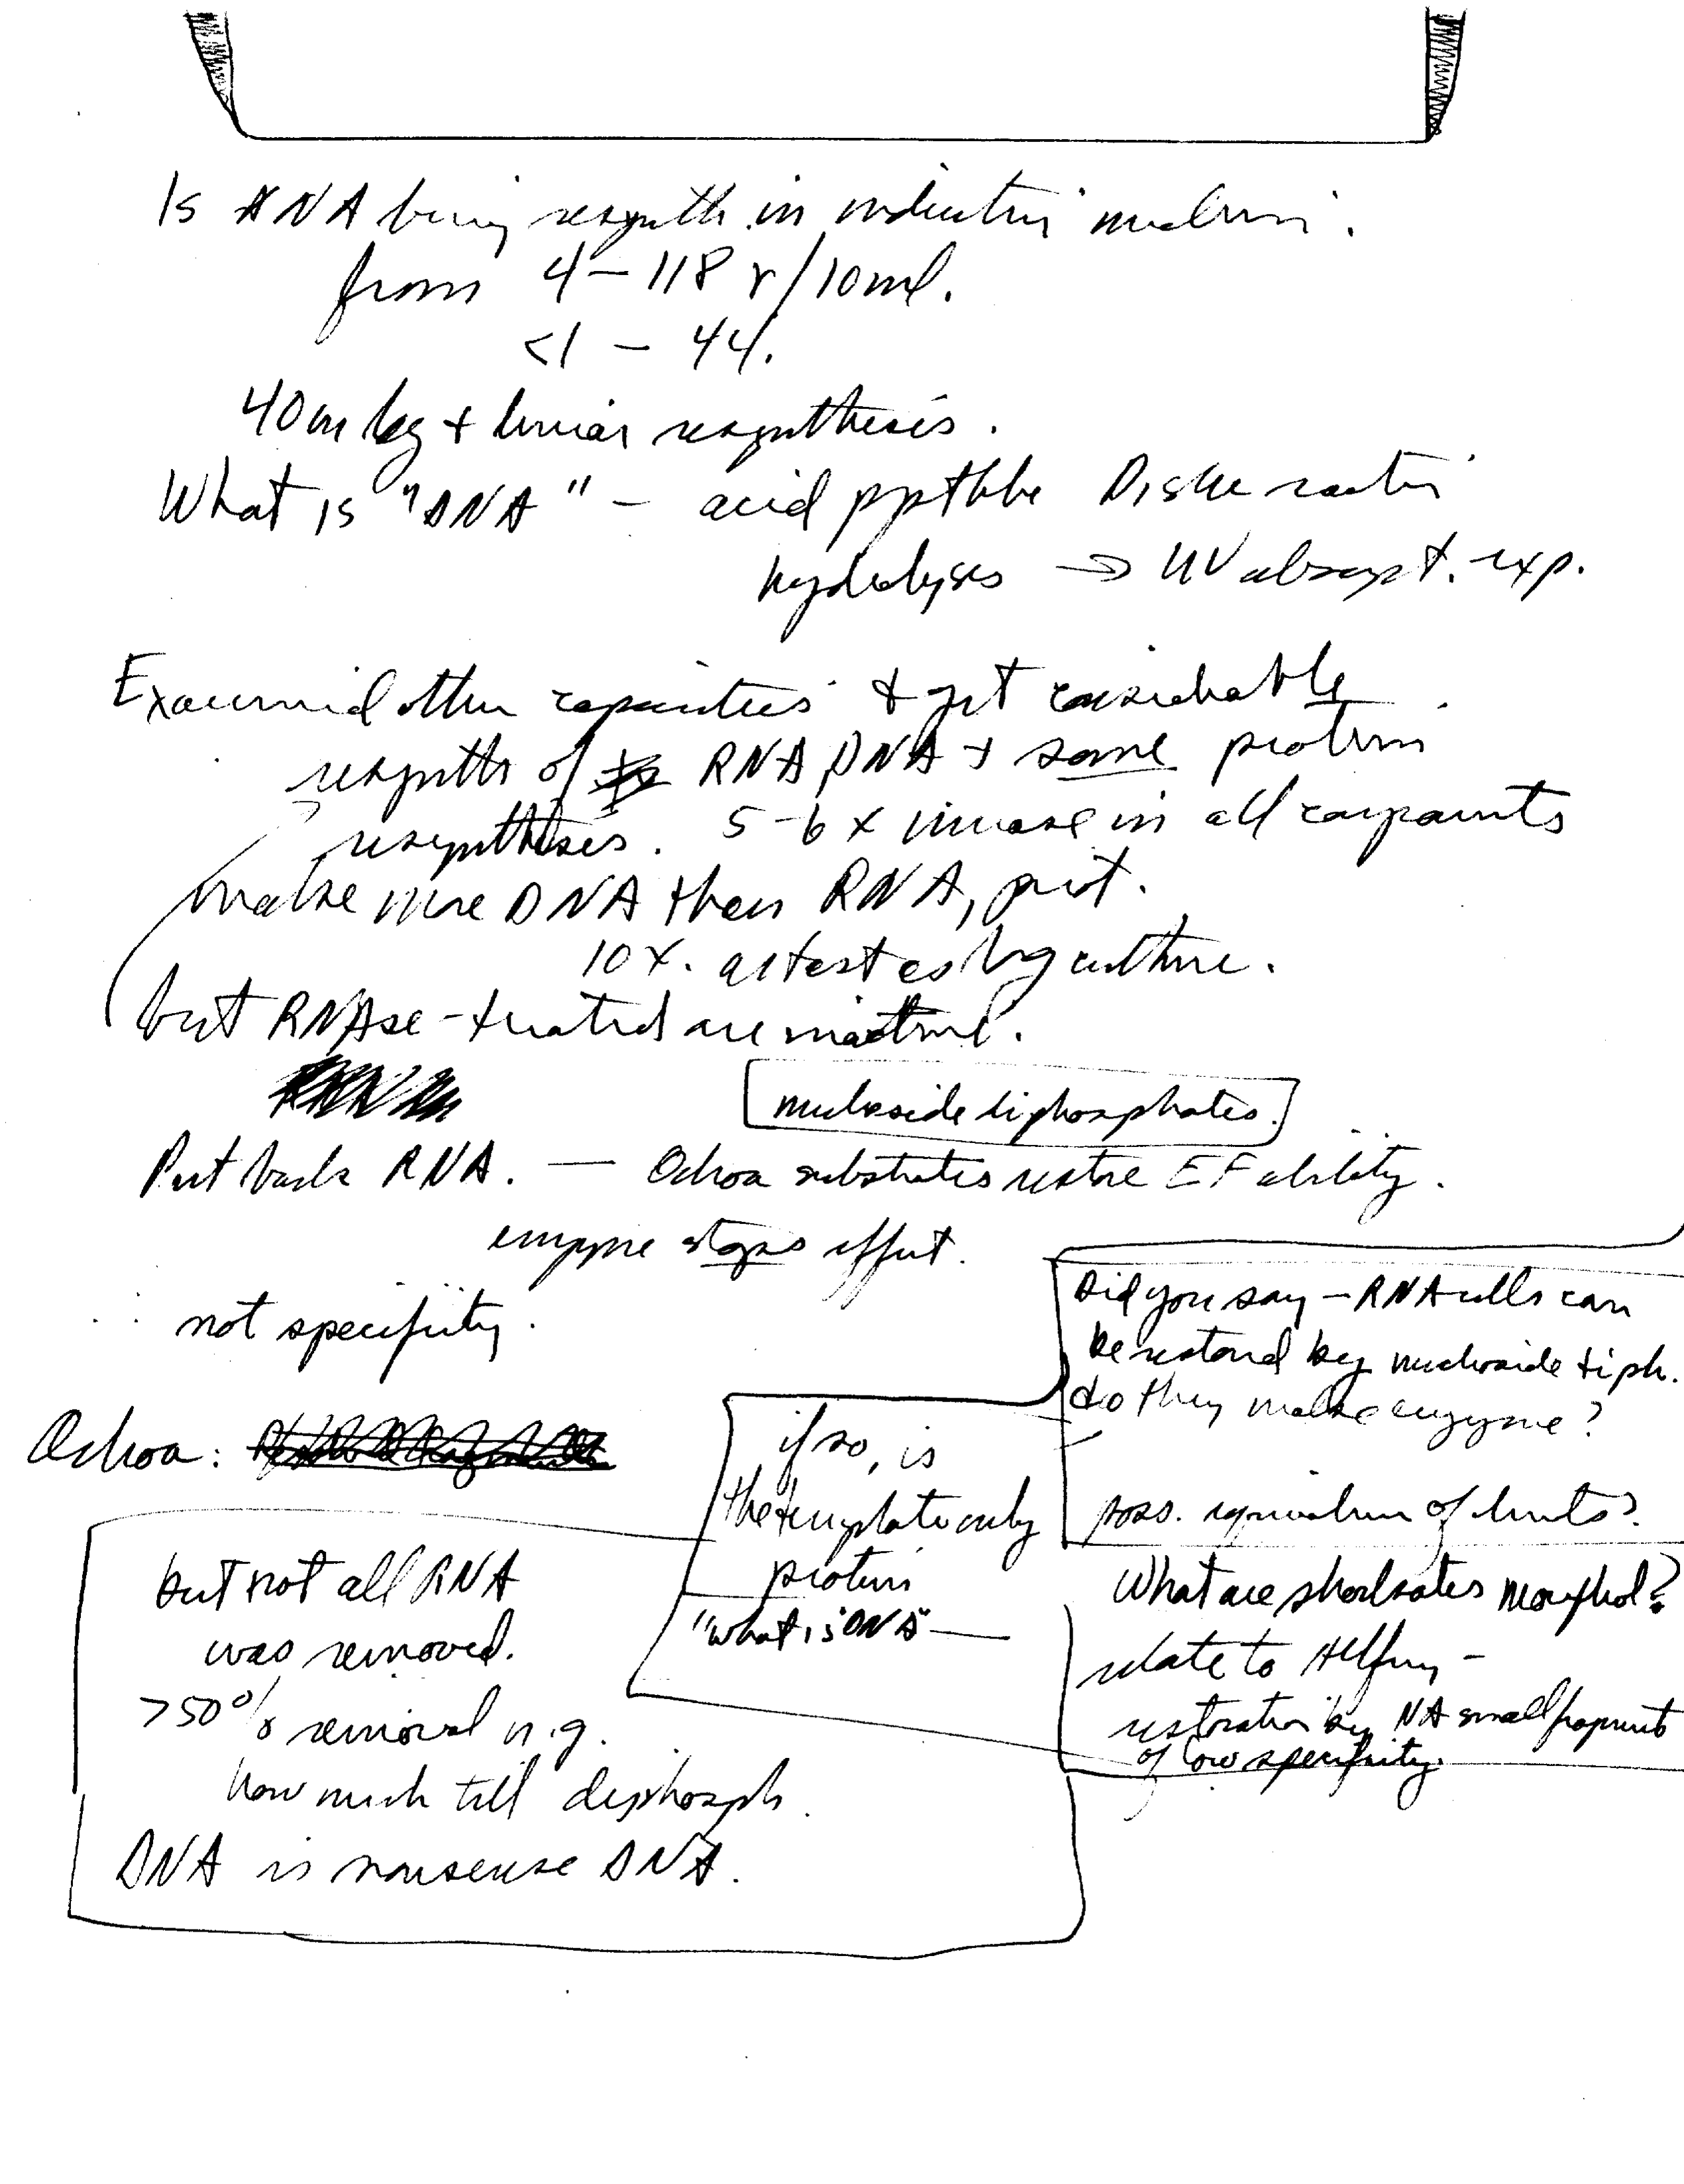 Is DNA being resynth. in induction medium.
from 4 – 118 γ/10ml.
<1 – 44.
40 m lag + linear resynthesis.
What is "DNA" – acid pptble Dische reaction
hydrolysis → UV absorpt. exp.
Examined other capacities & get considerable
resynth of RNA, DNA + some protein
resynthesis. 5-6 x increase in all components
make more DNA than RNA, prot.
10 X. as test es by culture.
but RNAse-treated are inactive.
nucleoside diphosphates.
Put back RNA. — Ochoa substrates restore EF ability.
enzyme stops effect.
not specificity.
Ochoa:
but not all RNA
was removed.
>50% removal n.g.
how much till diphosph.
DNA is nonsense DNA.
if so, is
the template only
protein
"what is DNA" —
Did you say – RNA cells can
be restored by nucleoside diph.
do they make enzyme?
poss. equivalence of limits?
What are shockates morphol?
relate to Allfrey –
restoration by NA small fragments
of low specificity.